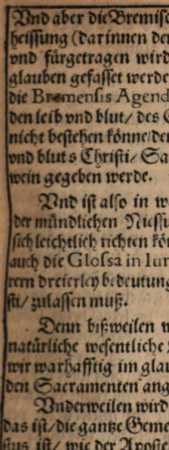 Vnd aber die Bremisc
heissung (darinnen der
vnd fürgetragen wird
glauben gefasset werde
die Bremensis Agend
den leib vnd blut / des C
nicht bestehen könne / der
vnd bluts Christi / Sa
wein gegeben werde.
Vnd ist also in w
der mündlichen Niessu
sich leichtlich richten kö
auch die Glossa in Iur
rern dreierley bedeutung
sti / zulassen muß.
Denn bißweilen w
natürliche wesentliche
wir warhafftig im glau
den Sacramenten ang
Vnderweilen wird
das ist / die gantze Geme
stus ist / wie der Aposte